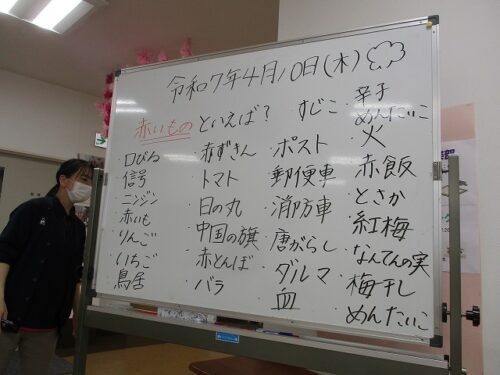 令和7年4月10日(木)
赤いものといえば?
口びる
信号
ニンジン
赤いも
りんご
いちご
鳥居
赤ずきん
トマト
日の丸
中国の旗
赤とんぼ
バラ
すじこ
ポスト
郵便車
消防車
唐がらし
ダルマ
血
辛子めんたいこ
火
赤飯
とさか
紅梅
なんてんの実
梅干し
めんたいこ